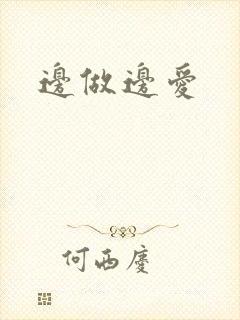 邊做邊愛
何西慶